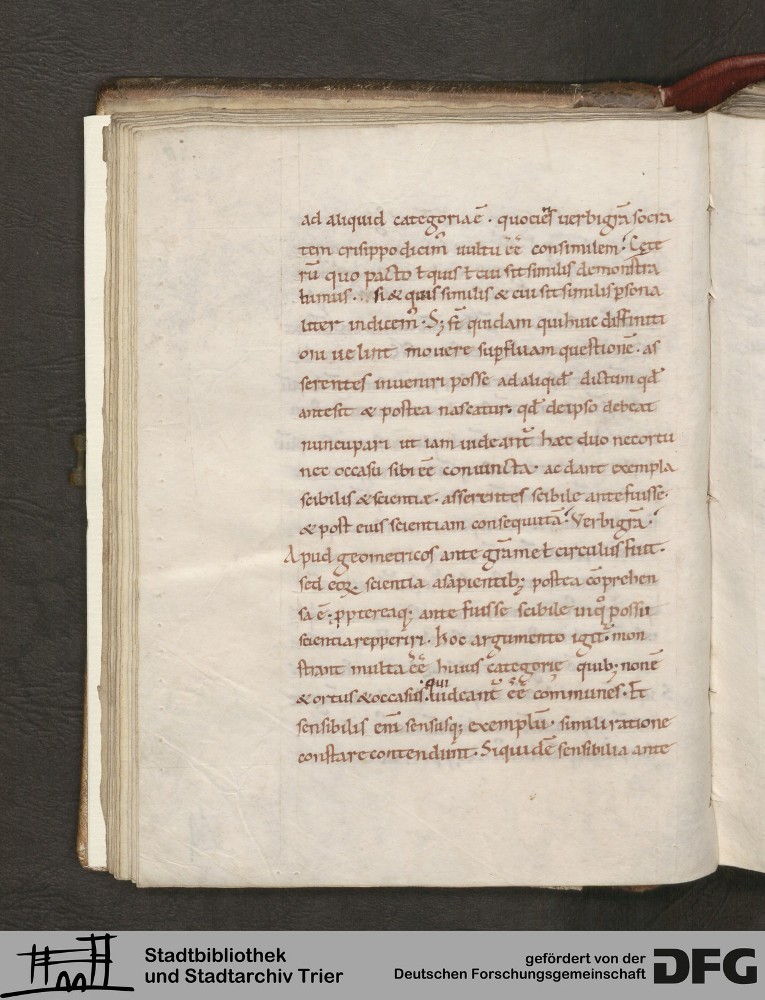 ad aliquid categoria ē · quociēs verbi grā socra
tem crisippo dicim᷒ vultu ēē consimilem · Cete
rū quo pacto ł quis ł cui sit similis demonstra
bimus · si & quis similis & cui sit similis psona
liter indicem᷒ · S; st̄ quidam qui huic diffiniti
oni velint movere supfluam questionē · as
serentes inveniri posse ad aliqid dictum qđ
antesit & postea nascatur · qđ de ipso debeat
nuncupari ut iam videant᷒ hæc duo nec ortu
nec occasu sibi ēē convincta · ac dant exempla
scibilis & scientiæ · asserentes scibile ante fuisse ·
& post eius scientiam consequutā · Verbi grā ·
Apud geometricos ante grāme ł circulus fuit ·
sed eoꝝ scientia a sapientib; postea cōprehen
sa ē · ppterea q; ante fuisse scibile in q̊ possit
scientia repperiri · hoc argumento igit᷒ mon
strant multa ēē huius categorie quib; non ē
& ortus & occasus · qui videant᷒ ēē communes · Et
sensibilis em̄ sensusq; exemplū · simili ratione
constare contendunt · Siquidē sensibilia ante
Stadtbibliothek
und Stadtarchiv Trier
gefördert von der
Deutschen Forschungsgemeinschaft
DFG